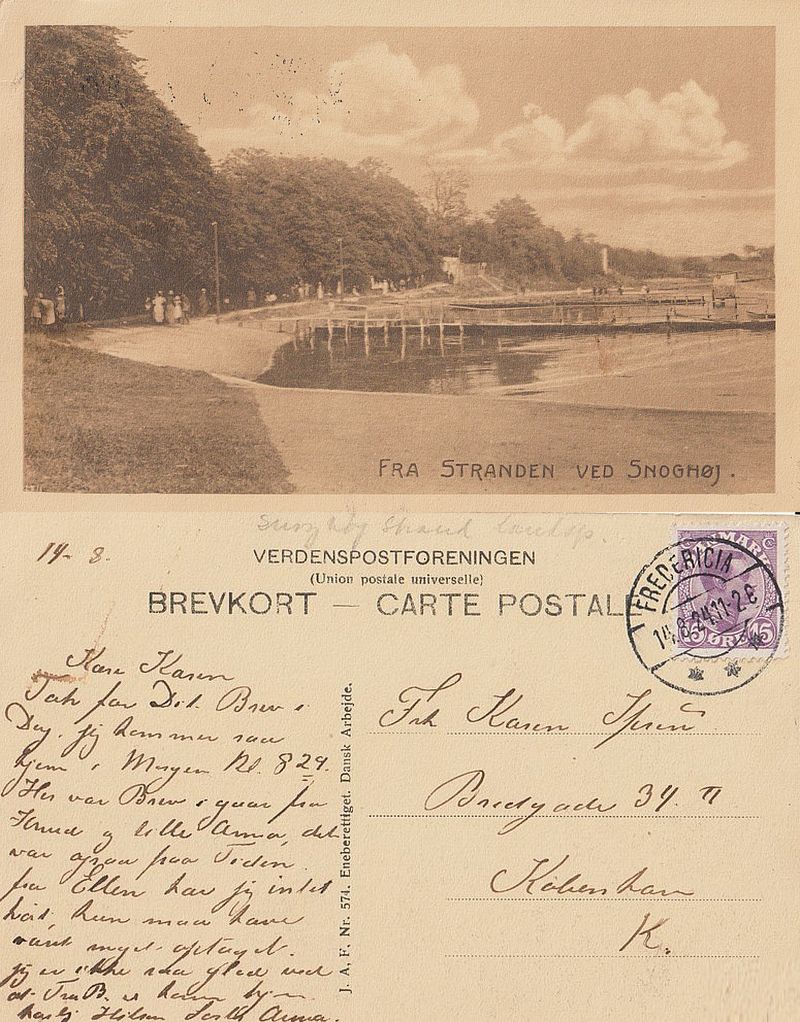 FRA STRANDEN VED SNOGHØJ.
strand
14-8.
VERDENSPOSTFORENINGEN
(Union postale universelle)
BREVKORT — CARTE POSTALE
DANMARK
15 ØRE 15
FREDERICIA
14.8.24.11-2 E
Kære Karen
Tak for Dit Brev i
Dag. jeg kommer saa
hjem i Morgen Kl. 8 29.
Her var Brev i gaar fra
Knud og lille Anna, det
var ogsaa paa Tiden.
fra Ellen har jeg intet
hørt hun maa have
været meget optaget.
jeg er ikke saa glad ved
at Fru B. er
Hilsen Anna.
J. A. F. Nr. 574. Eneberettiget. Dansk Arbejde.
Frk Karen
Bredgade 34. II
København
K.